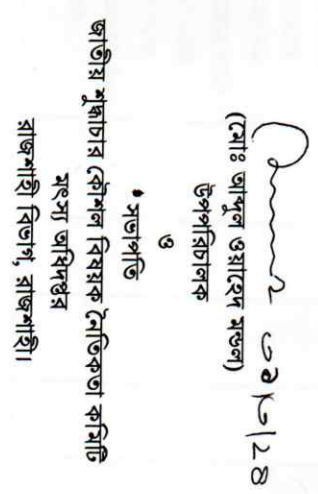 (মোঃ আব্দুল ওয়াহেদ মন্ডল)
উপপরিচালক
ও
সভাপতি
জাতীয় শুদ্ধাচার কৌশল বিষয়ক নৈতিকতা কমিটি
মৎস্য অধিদপ্তর
রাজশাহী বিভাগ, রাজশাহী।